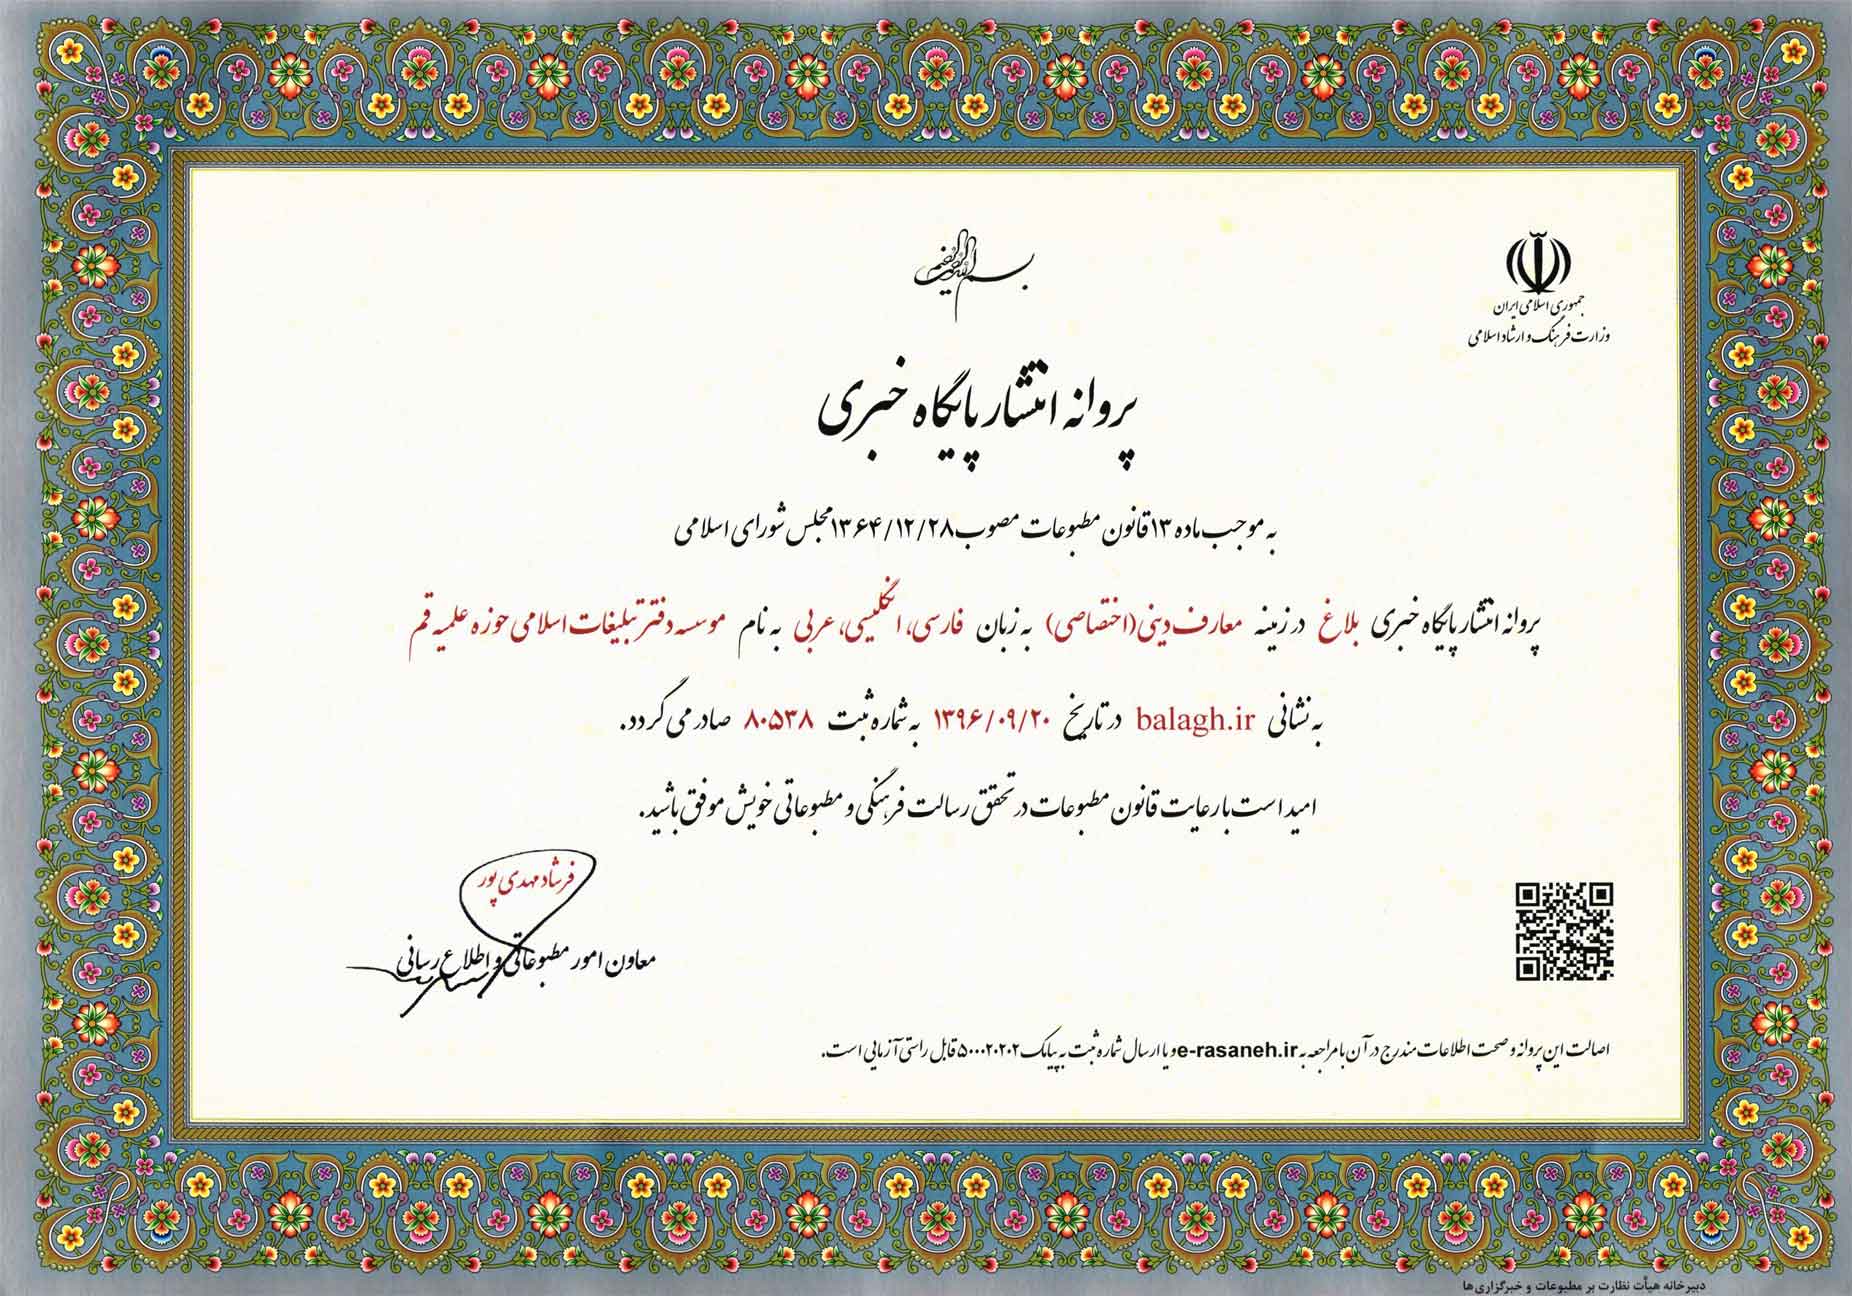 بسم الله الرحمن الرحیم
جمهوری اسلامی ایران
وزارت فرهنگ و ارشاد اسلامی
پروانه انتشار پایگاه خبری
به موجب ماده ۱۳ قانون مطبوعات مصوب ۱۳۶۴/۱۲/۲۸ مجلس شورای اسلامی
پروانه انتشار پایگاه خبری بلاغ در زمینه معارف دینی (اختصاصی) به زبان فارسی، انگلیسی، عربی به نام موسسه دفتر تبلیغات اسلامی حوزه علمیه قم
به نشانی balagh.ir در تاریخ ۱۳۹۶/۰۹/۲۰ به شماره ثبت ۸۰۵۳۸ صادر می گردد.
امید است با رعایت قانون مطبوعات در تحقق رسالت فرهنگی و مطبوعاتی خویش موفق باشید.
فرشاد مهدی پور
معاون امور مطبوعاتی و اطلاع رسانی
اصالت این پروانه و صحت اطلاعات مندرج در آن با مراجعه به e-rasaneh.ir و یا ارسال شماره ثبت به پیامک ۵۰۰۰۲۰۲۰۲ قابل راستی آزمایی است.
دبیرخانه هیأت نظارت بر مطبوعات و خبرگزاری‌ها